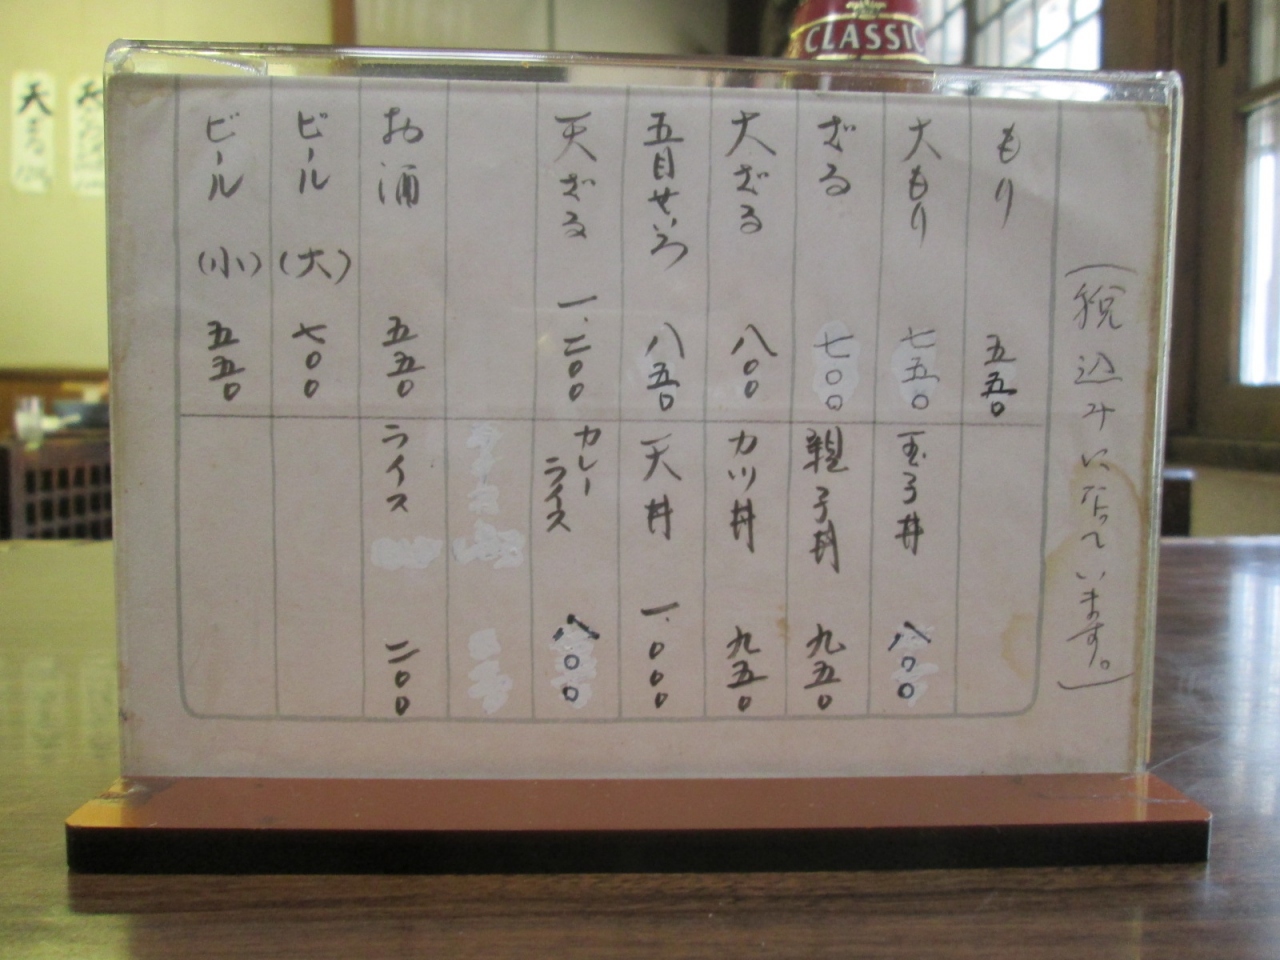 (税込みになっています。)
もり 五五〇
大もり 七五〇
ざる 七〇〇
大ざる 八〇〇
五目せいろ 八五〇
天ざる 一、二〇〇
お酒 五五〇
ビール (大) 七〇〇
ビール (小) 五五〇
玉子丼 八〇〇
親子丼 九五〇
カツ丼 九五〇
天丼 一、〇〇〇
カレーライス 八〇〇
ライス 二〇〇
CLASSIC
天